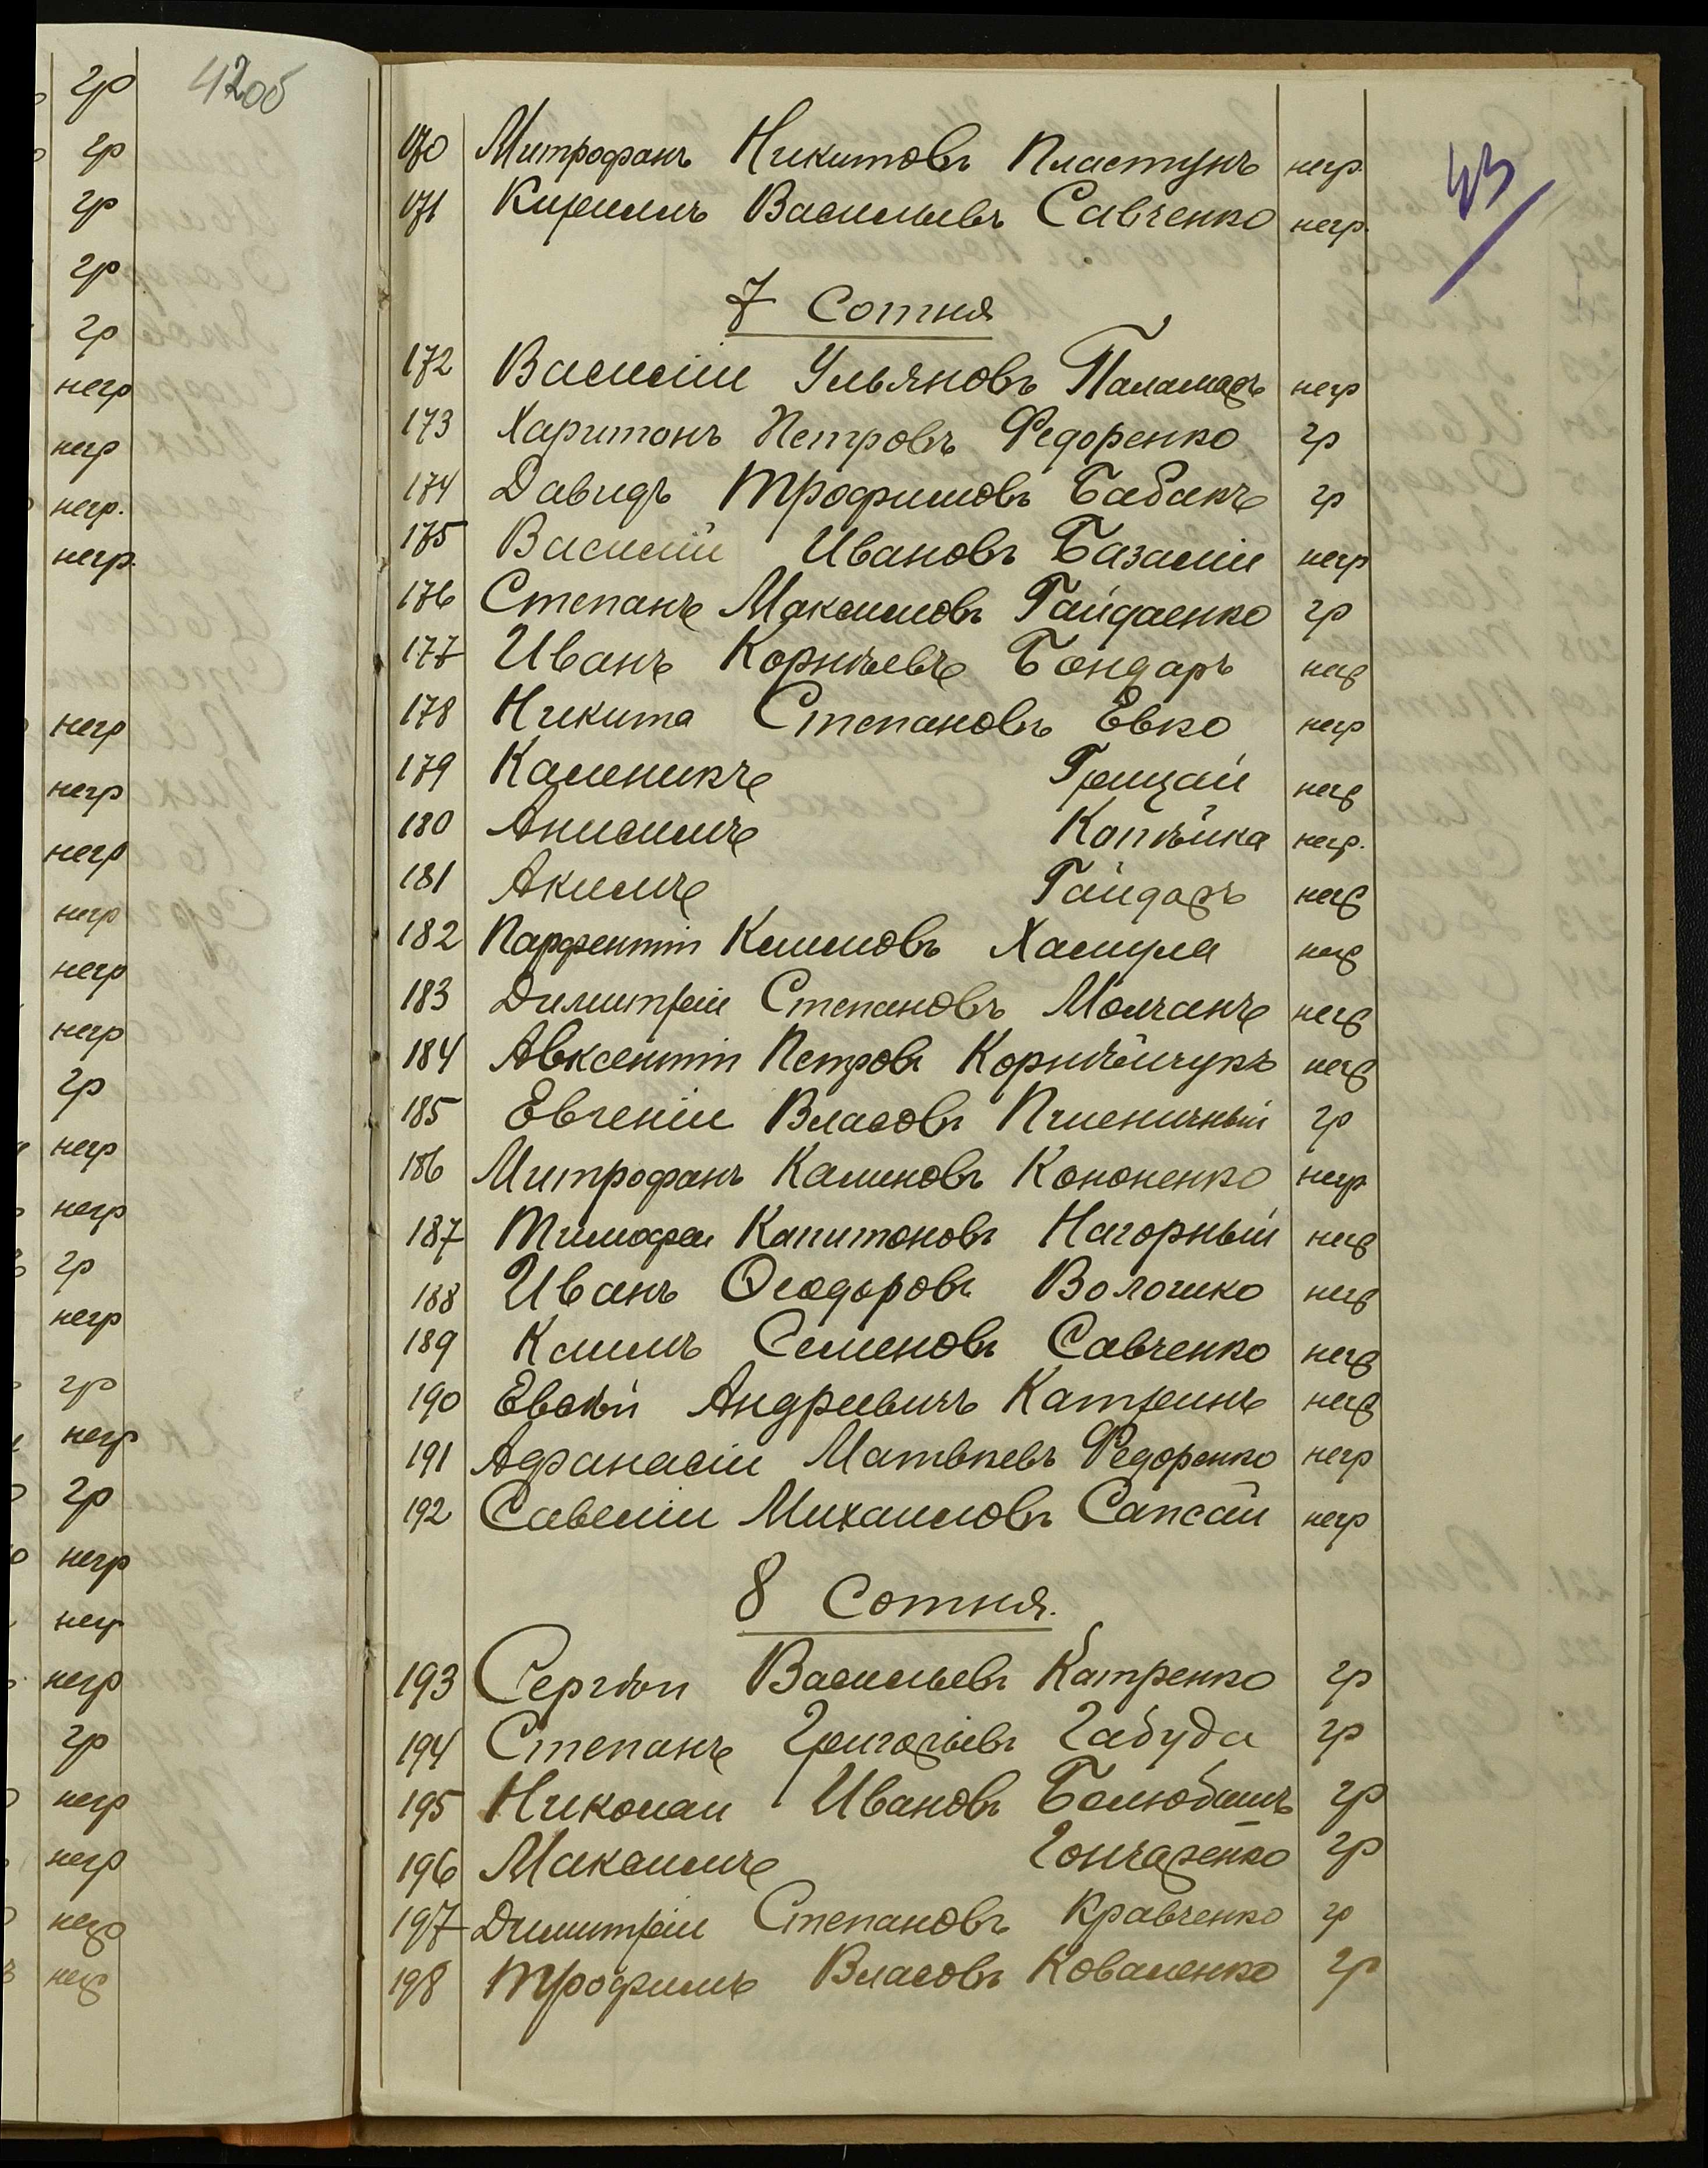 гр
42об
гр
гр
гр
гр
негр
негр
негр.
негр.
негр
негр
негр
негр
негр
негр
гр
негр
негр
гр
негр
гр
негр
гр
негр
негр
негр
гр
негр
негр
негр
негр
43
170 Митрофанъ Никитовъ Пластунъ негр.
171 Кириллъ Васильевъ Савченко негр.
7 Сотня
172 Василій Ульяновъ Паламарь негр
173 Харитонъ Петровъ Федоренко гр
174 Давидъ Трофимовъ Бабакъ гр
175 Василій Ивановъ Базалій негр
176 Степанъ Максимовъ Гайдаенко гр
177 Иванъ Корнѣевъ Бондарь негр
178 Никита Степановъ Евко негр
179 Каленикъ Грицай негр
180 Анисимъ Копѣйка негр.
181 Акимъ Гайдарь негр
182 Парфентій Климовъ Хамула негр
183 Димитрій Степановъ Молчанъ негр
184 Авксентій Петровъ Корнѣйчукъ негр
185 Евгеній Власовъ Пшеничный гр
186 Митрофанъ Калиновъ Кононенко негр
187 Тимофей Капитоновъ Нагорный негр
188 Иванъ Ѳеодоровъ Волошко негр
189 Климъ Семеновъ Савченко негр
190 Евсѣй Андреевичъ Катринъ негр
191 Афанасій Матвѣевъ Федоренко негр
192 Савелій Михаиловъ Сапсай негр
8 Сотня.
193 Сергѣй Васильевъ Катренко гр
194 Степанъ Григорьевъ Габуда гр
195 Николай Ивановъ Белюбашъ гр
196 Максимъ Гончаренко гр
197 Димитрій Степановъ Кравченко гр
198 Трофимъ Власовъ Коваленко гр